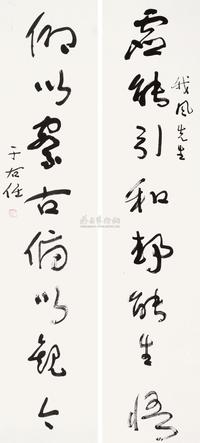 虚能引和静能生悟
我風先生
仰以察古俯以觀今
于右任